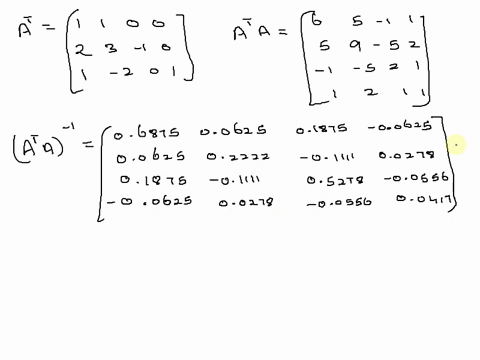 Aᵀ = [1 1 0 0 AᵀA = [6 5 -1 1
2 3 -1 0 5 9 -5 2
1 -2 0 1] -1 -5 2 1
1 2 1 1]
(AᵀA)⁻¹ = [0.6875 0.0625 0.1875 -0.0625
0.0625 0.2222 -0.1111 0.0278
0.1875 -0.1111 0.5278 -0.0556
-0.0625 0.0278 -0.0556 0.0417]